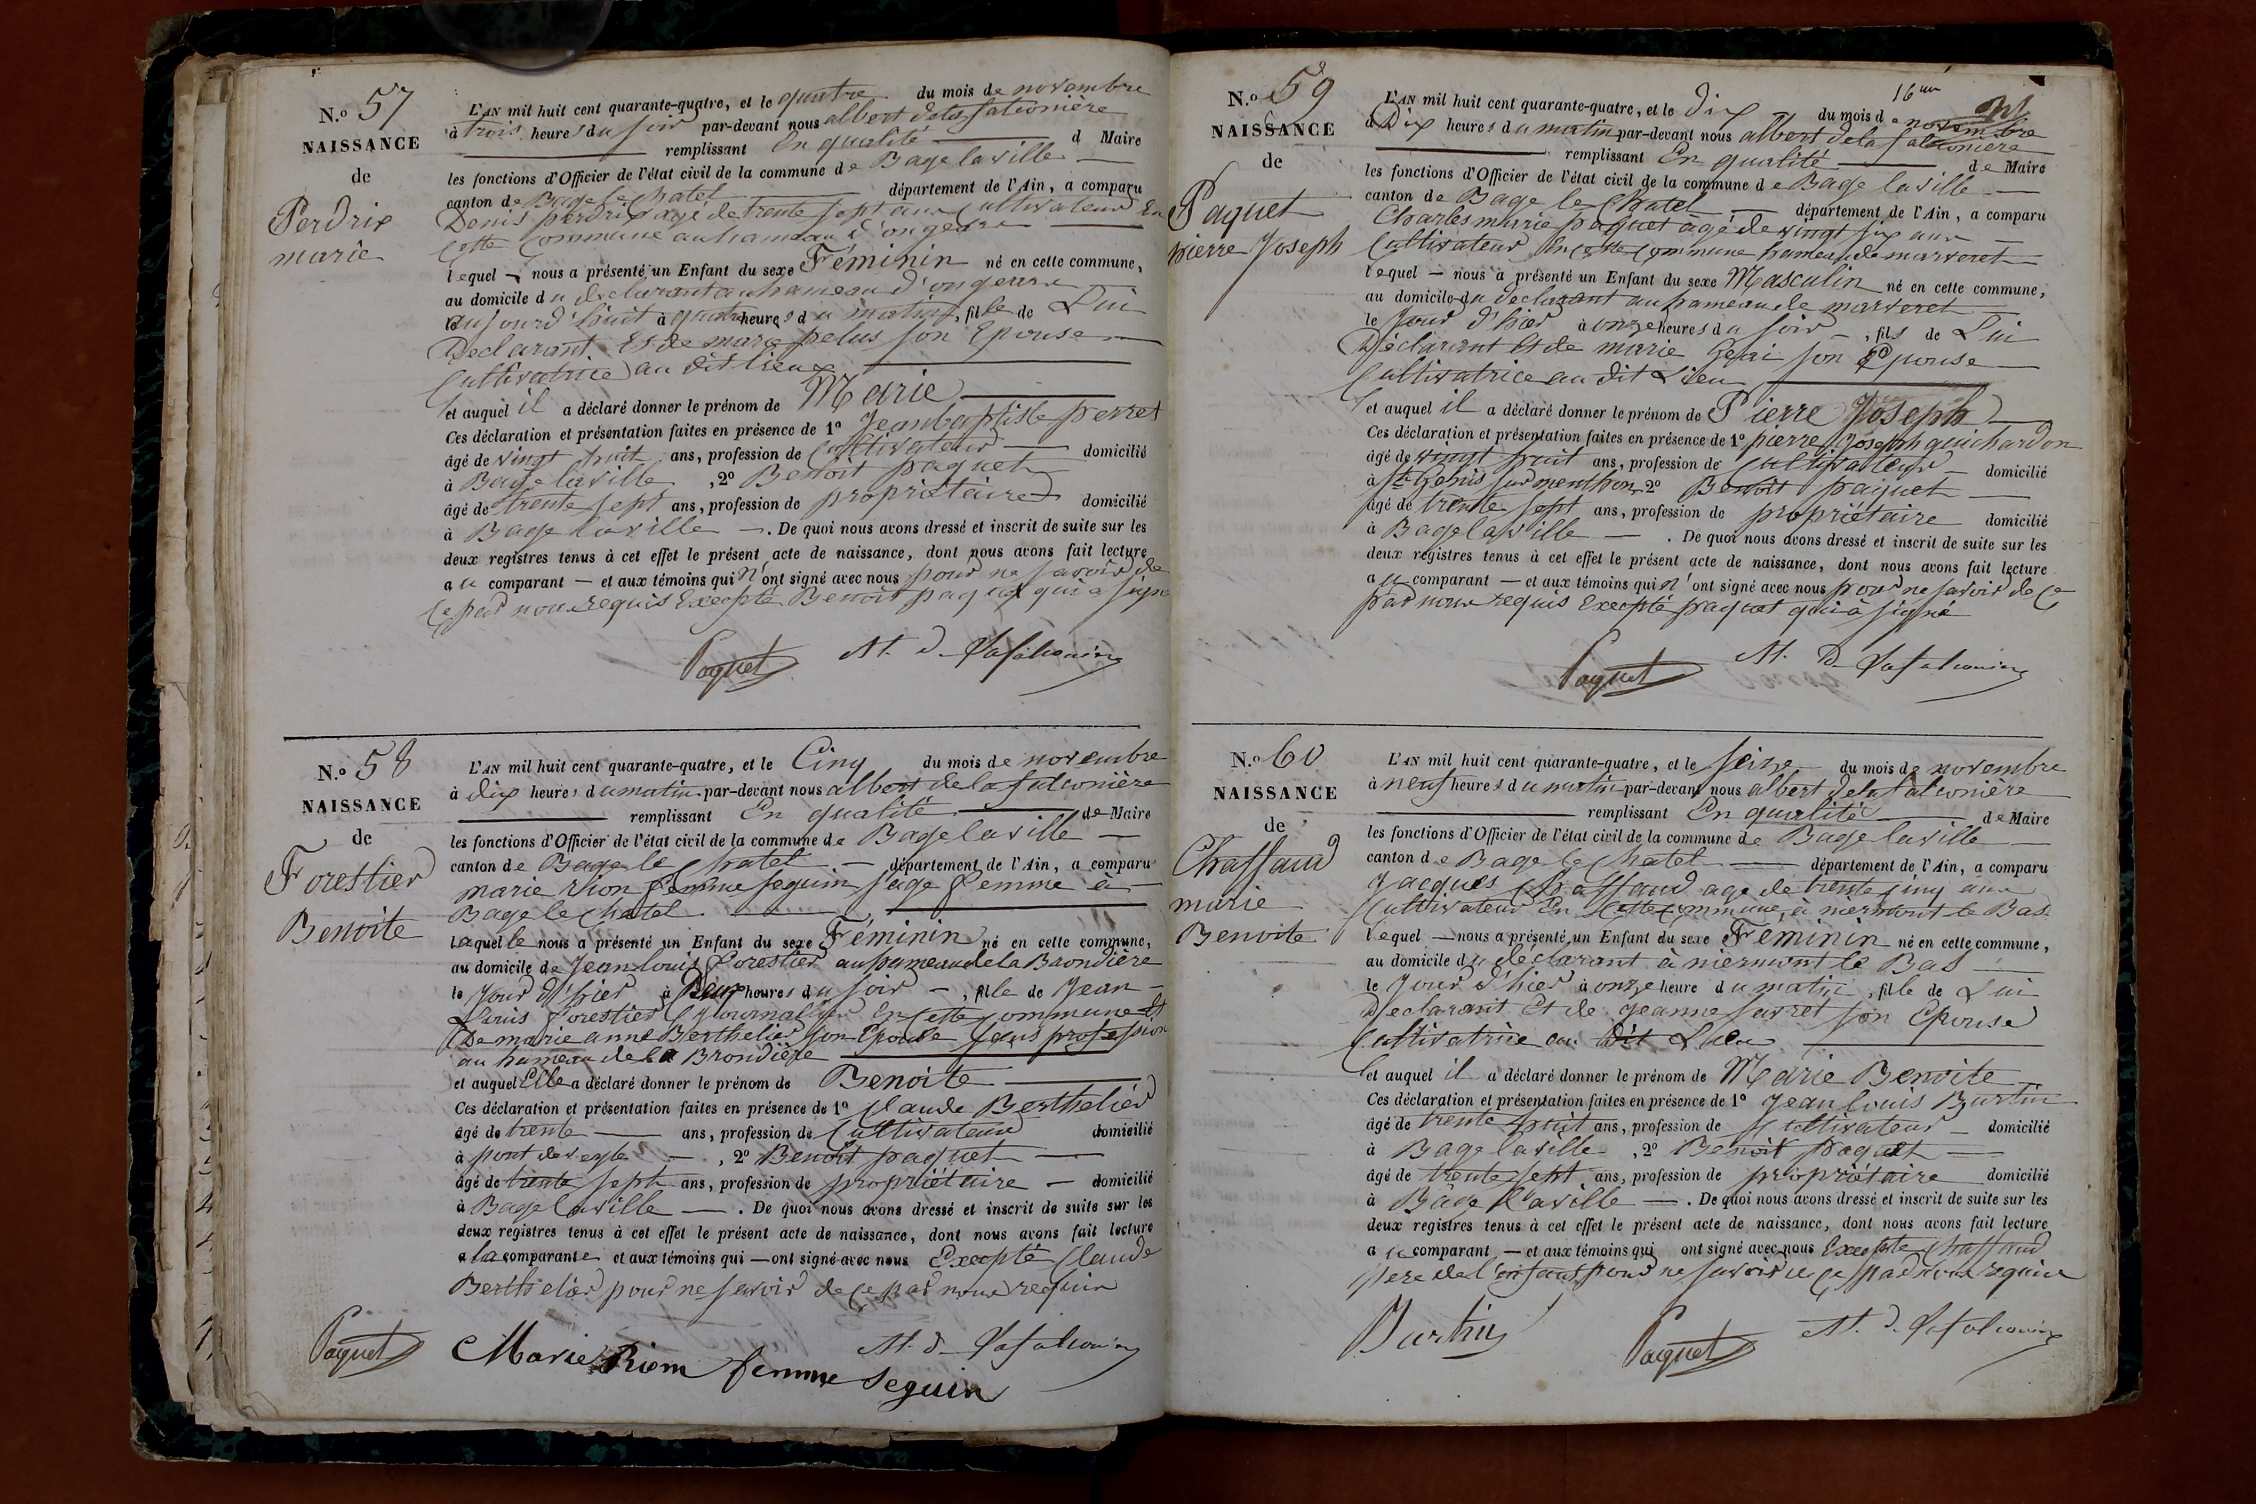 N.o 57
NAISSANCE
de
Perdrix
marie
L'AN mil huit cent quarante-quatre, et le quatre du mois de novembre
à trois heures du soir par-devant nous albert delafalconière
remplissant En qualité d Maire
les fonctions d'Officier de l'état civil de la commune de Bage laville
canton de Bage le Chatel département de l'Ain, a comparu
Denis perdrix agé de trente sept ans Cultivateur En
Cette Commune au hameau d'ongeure
lequel nous a présenté un Enfant du sexe Féminin né en cette commune,
au domicile du declarant au hameau d'ongeure
le aujourd'huit à quatre heures du matin, fille de Lui
Declarant Et de marie pelus son Epouse
Cultivatrice au dit lieu
et auquel il a déclaré donner le prénom de Marie
Ces déclaration et présentation faites en présence de 1o Jeanbaptiste perret
âgé de vingt huit ans, profession de Cultivateur domicilié
à Bage laville, 2o Benoit paquet
âgé de trente sept ans, profession de propriétaire domicilié
à Bage laville. De quoi nous avons dressé et inscrit de suite sur les
deux registres tenus à cet effet le présent acte de naissance, dont nous avons fait lecture
au comparant et aux témoins qui n'ont signé avec nous pour ne savoir de
Ce par nous requis Excepté Benoit paquet qui a signé
Paquet Al. d. Lafalconière
N.o 58
NAISSANCE
de
Forestier
Benoite
L'AN mil huit cent quarante-quatre, et le Cinq du mois de novembre
à dix heures du matin par-devant nous albert delafalconière
remplissant En qualité de Maire
les fonctions d'Officier de l'état civil de la commune de Bage laville
canton de Bage le Chatel département de l'Ain, a comparu
marie rion femme seguin sage femme à
Bage le Chatel
laquelle nous a présenté un Enfant du sexe Féminin né en cette commune,
au domicile de Jean louis forestier au hameau de la Baondière
le Jour d'hier à Deux heures du soir, fille de Jean
Louis forestier Journalier En Cette Commune Et
De marie anne Berthelier son Epouse sans profession
au hameau de la Brondière
et auquel Elle a déclaré donner le prénom de Benoite
Ces déclaration et présentation faites en présence de 1o Claude Berthelier
âgé de trente ans, profession de Cultivateur domicilié
à pont de veyle, 2o Benoit paquet
âgé de trente sept ans, profession de propriétaire domicilié
à Bage laville. De quoi nous avons dressé et inscrit de suite sur les
deux registres tenus à cet effet le présent acte de naissance, dont nous avons fait lecture
a la comparante et aux témoins qui ont signé avec nous Excepté Claude
Berthelier pour ne savoir de Ce par nous requis
Paquet Marie Riom femme seguin Al. d. Lafalconière
N.o 59
NAISSANCE
de
Paquet
pierre Joseph
L'AN mil huit cent quarante-quatre, et le dix du mois de novembre
à Dix heures du matin par-devant nous albert delafalconière
remplissant En qualité de Maire
les fonctions d'Officier de l'état civil de la commune de Bage laville
canton de Bage le Chatel département de l'Ain, a comparu
Charles marie paquet agé de vingt six ans
Cultivateur En Cette Commune hameau de marveret
lequel nous a présenté un Enfant du sexe Masculin né en cette commune,
au domicile du declarant au hameau de marveret
le Jour d'hier à onze heures du soir, fils de Lui
Déclarant Et de marie Geai son Epouse
Cultivatrice au dit Lieu
et auquel il a déclaré donner le prénom de Pierre Joseph
Ces déclaration et présentation faites en présence de 1o pierre Joseph guichardon
âgé de vingt huit ans, profession de Cultivateur domicilié
à St Genis sur menthon, 2o Benoit paquet
âgé de trente sept ans, profession de propriétaire domicilié
à Bage laville. De quoi nous avons dressé et inscrit de suite sur les
deux registres tenus à cet effet le présent acte de naissance, dont nous avons fait lecture
au comparant et aux témoins qui n'ont signé avec nous pour ne savoir de Ce
par nous requis Excepté paquet qui à signé
Paquet Al. d. Lafalconière
N.o 60
NAISSANCE
de
Chaffaud
marie
Benoite
L'AN mil huit cent quarante-quatre, et le seize du mois de novembre
à neuf heures du matin par-devant nous albert delafalconière
remplissant En qualité de Maire
les fonctions d'Officier de l'état civil de la commune de Bage laville
canton de Bage le Chatel département de l'Ain, a comparu
Jacques Chaffaud agé de trente cinq ans
Cultivateur En Cette Commune, à niermont le Bas
lequel nous a présenté un Enfant du sexe Féminin né en cette commune,
au domicile du déclarant à niermont le Bas
le Jour d'hier à onze heure du matin, fille de Lui
Declarant Et de jeanne savret son Epouse
Cultivatrice au Dit Lieu
et auquel il a déclaré donner le prénom de Marie Benoite
Ces déclaration et présentation faites en présence de 1o Jean louis Burtin
âgé de trente huit ans, profession de Cultivateur domicilié
à Bage laville, 2o Benoit paquet
âgé de trente sept ans, profession de propriétaire domicilié
à Bage laville. De quoi nous avons dressé et inscrit de suite sur les
deux registres tenus à cet effet le présent acte de naissance, dont nous avons fait lecture
au comparant et aux témoins qui ont signé avec nous Excepté Chaffaud
pere de l'enfant pour ne savoir de Ce par nous requis
Burtin Paquet Al. d. Lafalconière